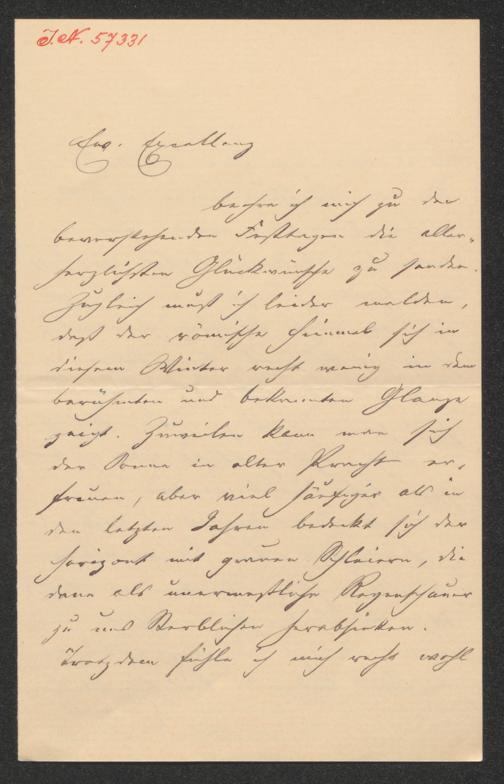 J.N. 57331
Ew. Excellenz
beehre ich mich zu den
bevorstehenden Festtagen die aller-
herzlichsten Glückwünsche zu senden.
Zugleich muß ich leider melden,
daß der römische Himmel sich in
diesem Winter recht wenig in dem
berühmten und bekannten Glanze
zeigt. Zuweilen kann man sich
der Sonne in alter Pracht er-
freuen, aber viel häufiger als in
den letzten Jahren bedeckt sich der
Horizont mit grauen Schleiern, die
dann als unermeßliche Regenschauer
zu uns Sterblichen herabsinken.
Trotzdem fühle ich mich recht wohl